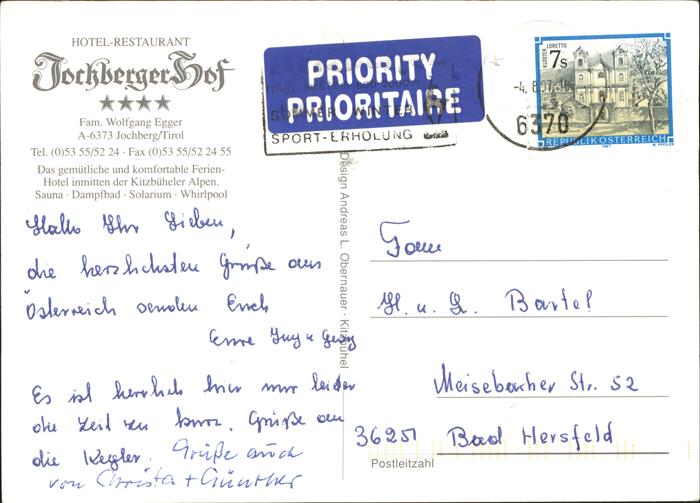 HOTEL-RESTAURANT
Jochberger Hof
Fam. Wolfgang Egger
A-6373 Jochberg/Tirol
Tel. (0)53 55/52 24 · Fax (0)53 55/52 24 55
Das gemütliche und komfortable Ferien-
Hotel inmitten der Kitzbüheler Alpen.
Sauna · Dampfbad · Solarium · Whirlpool
Hallo Ihr Lieben,
die herzlichsten Grüße aus
Österreich senden Euch
Eure Ing u Georg
Es ist herrlich hier nur leider
die Zeit zu kurz. Grüße an
die Kegler. Grüße auch
von Christa + Günther
Design Andreas L. Obernauer · Kitzbühel
PRIORITY
PRIORITAIRE
SOMMER WINTER
SPORT-ERHOLUNG
-4. 8
6370
KLOSTER LORETTO
7 S
REPUBLIK ÖSTERREICH
1987
Fam
H. u. G. Bartel
Meisebacher Str. 52
36251 Bad Hersfeld
Postleitzahl